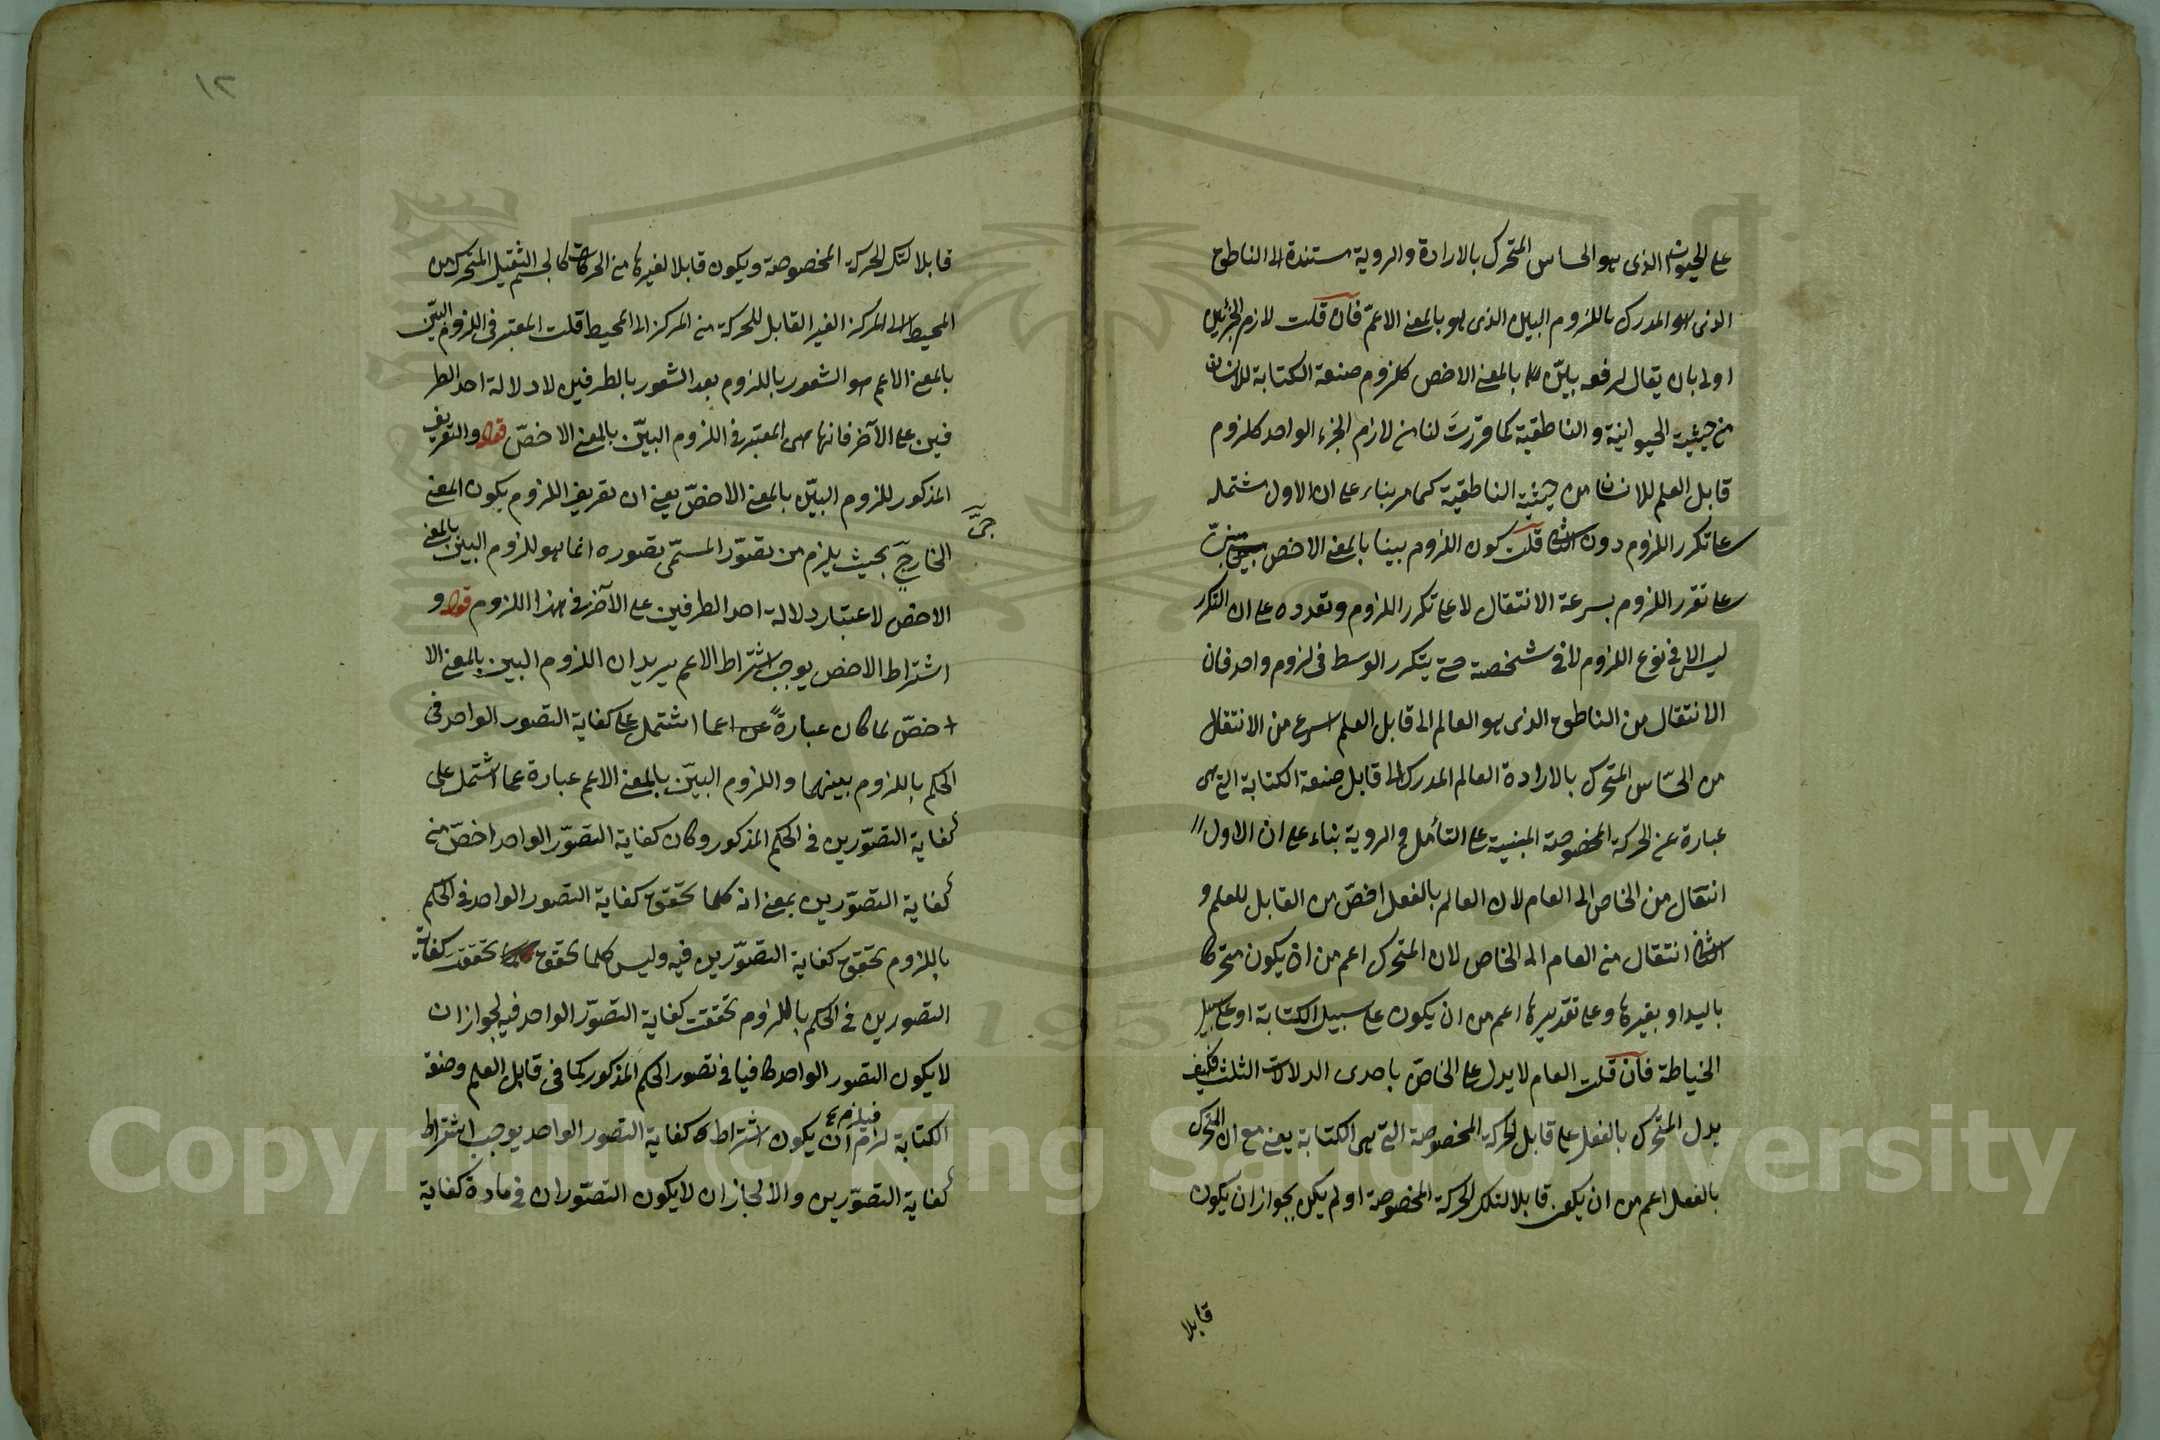 على الحيوان الذى هو الحساس المتحرك بالارادة والروية مستندة الى الناطق
الذى هو المدرك باللزوم البين الذى هو بالمعنى الاعمّ فان قلت لازم الجزئين
اولى بان يقال لرفعه بيّن بالمعنى الاخص كلزوم صنعة الكتابة للانسان
من حيثية الحيوانية والناطقية كما قررت لنا من لازم الجزء الواحد كلزوم
قابل العلم للانسان من حيثية الناطقية كما مر بناء على ان الاول مشتمل
على تكرر اللزوم دون الثانى قلت كون اللزوم بينا بالمعنى الاخص مبنى
على تقرر اللزوم بسرعة الانتقال لا على تكرر اللزوم وتعدده على ان التكرر
ليس الا فى نوع اللزوم لا فى شخصه حتى يتكرر الوسط فى لزوم واحد فان
الانتقال من الناطق الذى هو العالم الى قابل العلم اسرع من الانتقال
من الحسّاس المتحرك بالارادة العالم المدرك الى قابل صنعة الكتابة التى هى
عبارة عن الحركة المخصوصة المبنية على التأمل والروية بناء على ان الاول
انتقال من الخاص الى العام لان العالم بالفعل اخصّ من القابل للعلم و
الثانى انتقال من العام الى الخاص لان المتحرك اعم من ان يكون متحركا
باليد او بغيرها وعلى تقديرها اعم من ان يكون على سبيل الكتابة او على سبيل
الخياطة فان قلت العام لا يدل على الخاصّ باحدى الدلالات الثلث فكيف
يدل المتحرك بالفعل على قابل الحركة المخصوصة التى هى الكتابة يعنى مع ان المتحرك
بالفعل اعم من ان يكون قابلا لتلك الحركة المخصوصة او لم يكن لجواز ان يكون
قابلا
١٢
قابلا لتلك الحركة المخصوصة ويكون قابلا لغيرها من الحركات كالجسم الثقيل المتحرك من
المحيط الى المركز الغير القابل للحركة من المركز الى المحيط قلت المعتبر فى اللزوم البيّن
بالمعنى الاعم هو الشعور باللزوم بعد الشعور بالطرفين لا دلالة احد الطر
فين على الآخر فانها هى المعتبر فى اللزوم البيّن بالمعنى الاخصّ قوله والتعريف
المذكور للزوم البيّن بالمعنى الاخصّ يعنى ان تعريف اللزوم بكون المعنى
الخارجىّ بحيث يلزم من تصوّر المسمّى تصوره انما هو للزوم البين بالمعنى
جىّ
الاخص لاعتبار دلالة احد الطرفين على الآخر فى هذا اللزوم قوله و
اشتراط الاخص يوجب اشتراط الاعم يريد ان اللزوم البين بالمعنى الا
خصّ لما كان عبارةً عما اشتمل على كفاية التصور الواحد فى
الحكم باللزوم بينهما واللزوم البيّن بالمعنى الاعم عبارة عما اشتمل على
كفاية التصوّرين فى الحكم المذكور وكان كفاية التصوّر الواحد اخصّ من
كفاية التصوّرين بمعنى انه كلما تحقق كفاية التصور الواحد فى الحكم
باللزوم تحقق كفاية التصوّرين فيه وليس كلما تحقق تحققت كفاية
التصورين فى الحكم باللزوم تحققت كفاية التصوّر الواحد فيه لجواز ان
لا يكون التصور الواحد كافيا فى تصور الحكم المذكور كما فى قابل العلم وصنعة
الكتابة فيلزم ان يكون اشتراط كفاية التصور الواحد يوجب اشتراط
كفاية التصوّرين والا لجاز ان لا يكون التصوّران فى مادة كفاية
Copyright © King Saud University
1957